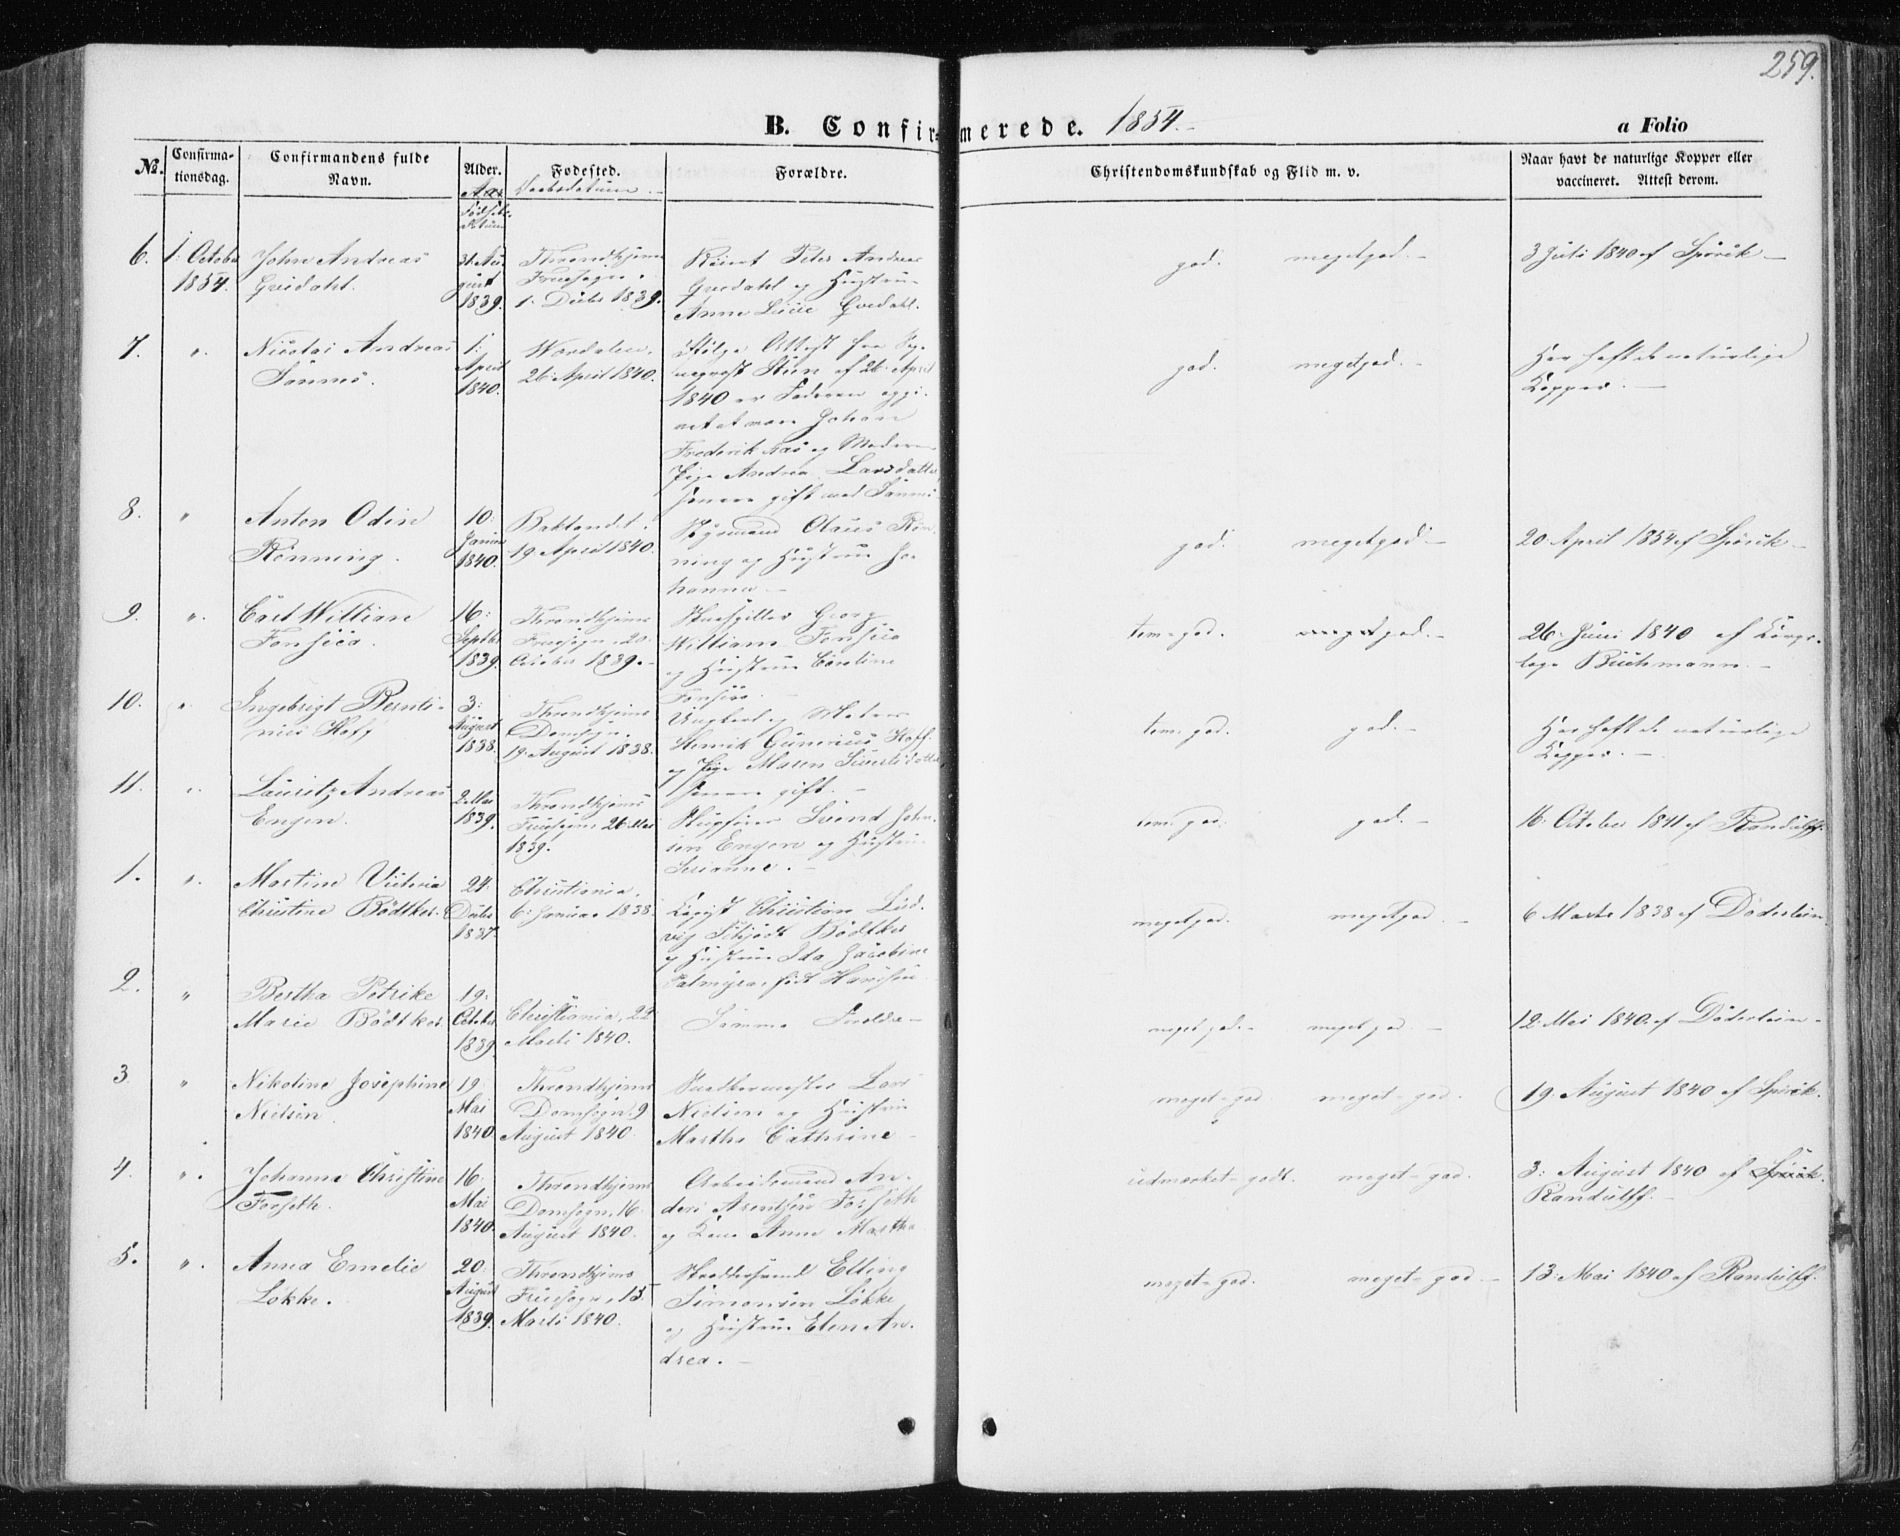 259.
B. Confirmerede. 1854.
a Folio
No.
Confirma-
tionsdag.
Confirmandens fulde
Navn.
Alder.
Fødested.
Daabsdatum
Forældre.
Christendomskundskab og Flid m. v.
Naar havt de naturlige Kopper eller
vaccineret. Attest derom.
6. 1. October
1854.
John Andreas
31. Au-
gust
1839.
Throndhjems
Fruesogn.
1. Decbr 1839.
Peter Andreas
og Hustru
Anne
god. megetgod.
3 Juli 1840 af Spörck
7. ".
Nicolai Andreas
1.
April
1840.
Værdalen.
26. April 1840.
Ifølge Attest fra
af 26. April
1840 er Faderen opgi-
vet at være Johan
Frederik og Moderen
Pige Andrea Larsdatter
senere gift med
god. megetgod.
Har haft de naturlige
Kopper.
8. "
Anton Odin
Rønning.
10.
Januar
1840.
Baklandet.
19 April 1840.
Olaus Røn-
ning og Hustru Jo-
hanna
god. megetgod
20 April 1854 af Spörck
9. ".
Carl William
Fonseca.
16.
Septbr
1839.
Throndhjems
Fruesogn, 20.
October 1839.
Skuespiller Georg
William Fonseca
og Hustru Caroline
Fonseca.
tem. god. meget god.
26. Juni 1840 af Corps-
læge Buchmann.
10. ".
Ingebrigt Bernti-
nus Hoff
3.
August
1838.
Throndhjems
Domsogn.
19. August 1838.
Ungkarl og
Henrik Gunerius Hoff
og Pige Maren Sivertsdatter
senere gift.
tem. god. god.
Har haft de naturlige
Kopper.
11. "
Lauritz Andreas
Engen.
2. Mai
1839.
Throndhjems
Fruesogn, 26. Mai
1839.
Svend John-
sen Engen og Hustru
tem. god. god.
16. October 1841 af Randulff.
1. ".
Martine Victoria
Christine Bödtker.
24.
Decbr
1837.
Christiania,
6. Januar 1838.
Kopist Christian Lud-
vig Bödtker
og Hustru Ida Jacobine
Palmyra, født
megetgod. megetgod.
6 Marts 1838 af Döderlein
2. "
Bertha Petrike
Marie Bödtker.
19.
October
1839.
Christiania, 22
Marts 1840.
Samme Forældre
meget god. meget god.
12. Mai 1840. af Döderlein
3 "
Nikoline Josephine
Nielsen.
19.
Mai
1840.
Throndhjems
Domsogn, 9
August 1840.
Snedkermester Lars
Nielsen og Hustru
Martha Cathrine
meget-god meget-god.
19. August 1840 af Spörck.
4. ".
Johanna Christine
Forseth.
16.
Mai
1840.
Throndhjems
Domsogn, 16
August 1840.
Arbeidsmand An-
ders Arentsen Forseth
og Kone Anne Martha
udmærket-godt. meget-god.
3. August 1840 af Spörck.
Randulff.
5. ".
Anna Emelie
Løkke.
20.
August
1839.
Throndhjems
Fruesogn, 15
Marts 1840.
Skræddersvend Elling
Simonsen Løkke
og Hustru Elen An-
drea.
meget-god. meget-god
13. Mai 1840 af Randulff.